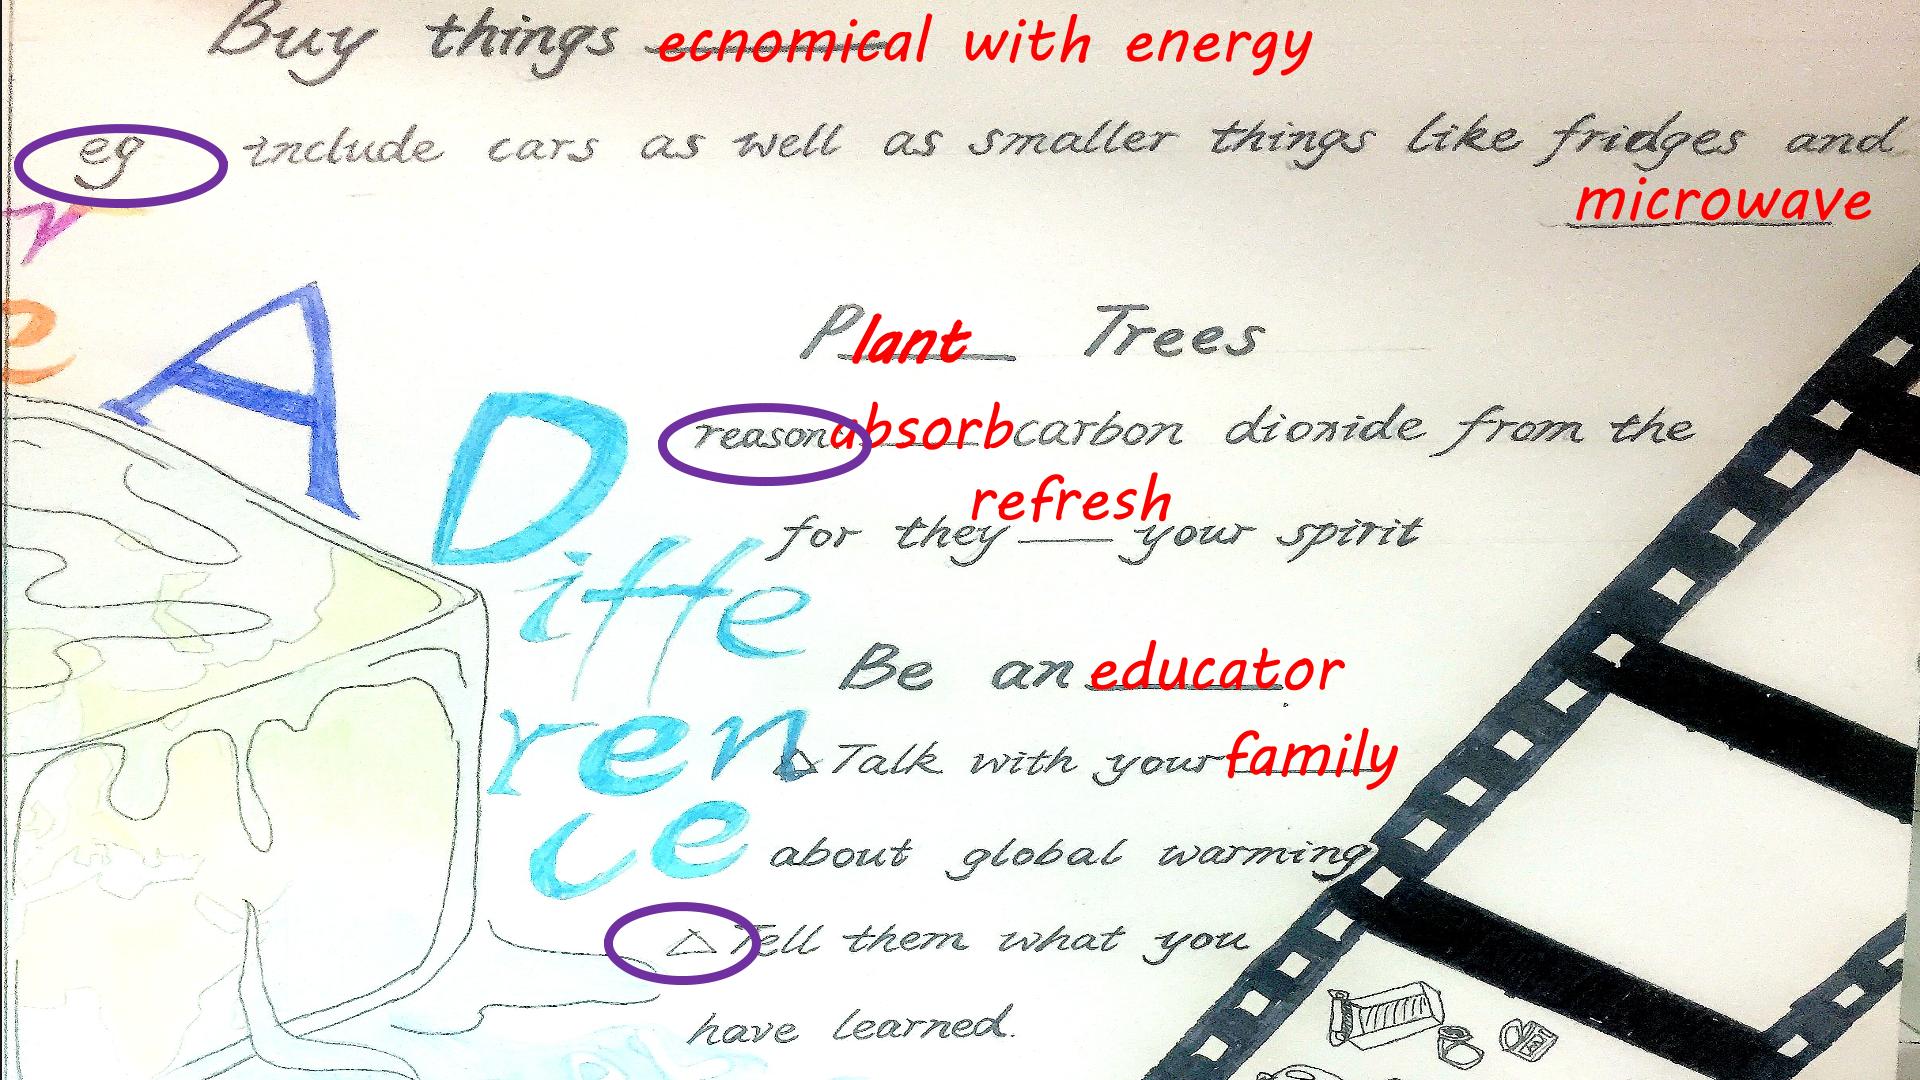 Buy things ecnomical with energy
eg include cars as well as smaller things like fridges and
microwave
e A Difference
Plant Trees
reason absorb carbon dioxide from the
refresh
for they your spirit
Be an educator
△Talk with your family
about global warming
△Tell them what you
have learned.